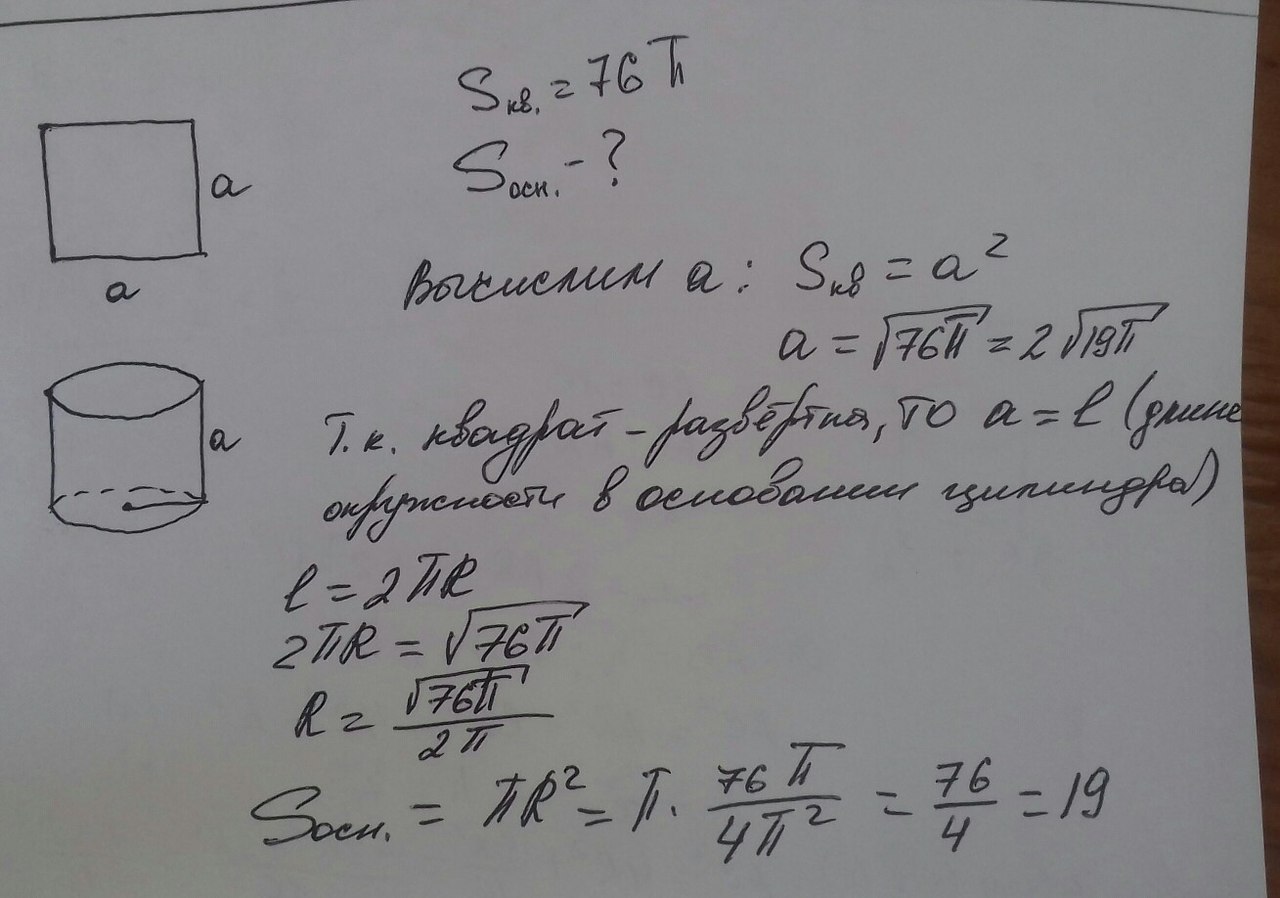 Sкв. = 76π
Sосн. - ?
a
a
Вычислим a: Sкв = a²
a = √76π = 2√19π
a
Т.к. квадрат - развёртка, то a = l (длине
окружности в основании цилиндра)
l = 2πR
2πR = √76π
R = √76π / 2π
Sосн. = πR² = π · 76π / 4π² = 76 / 4 = 19